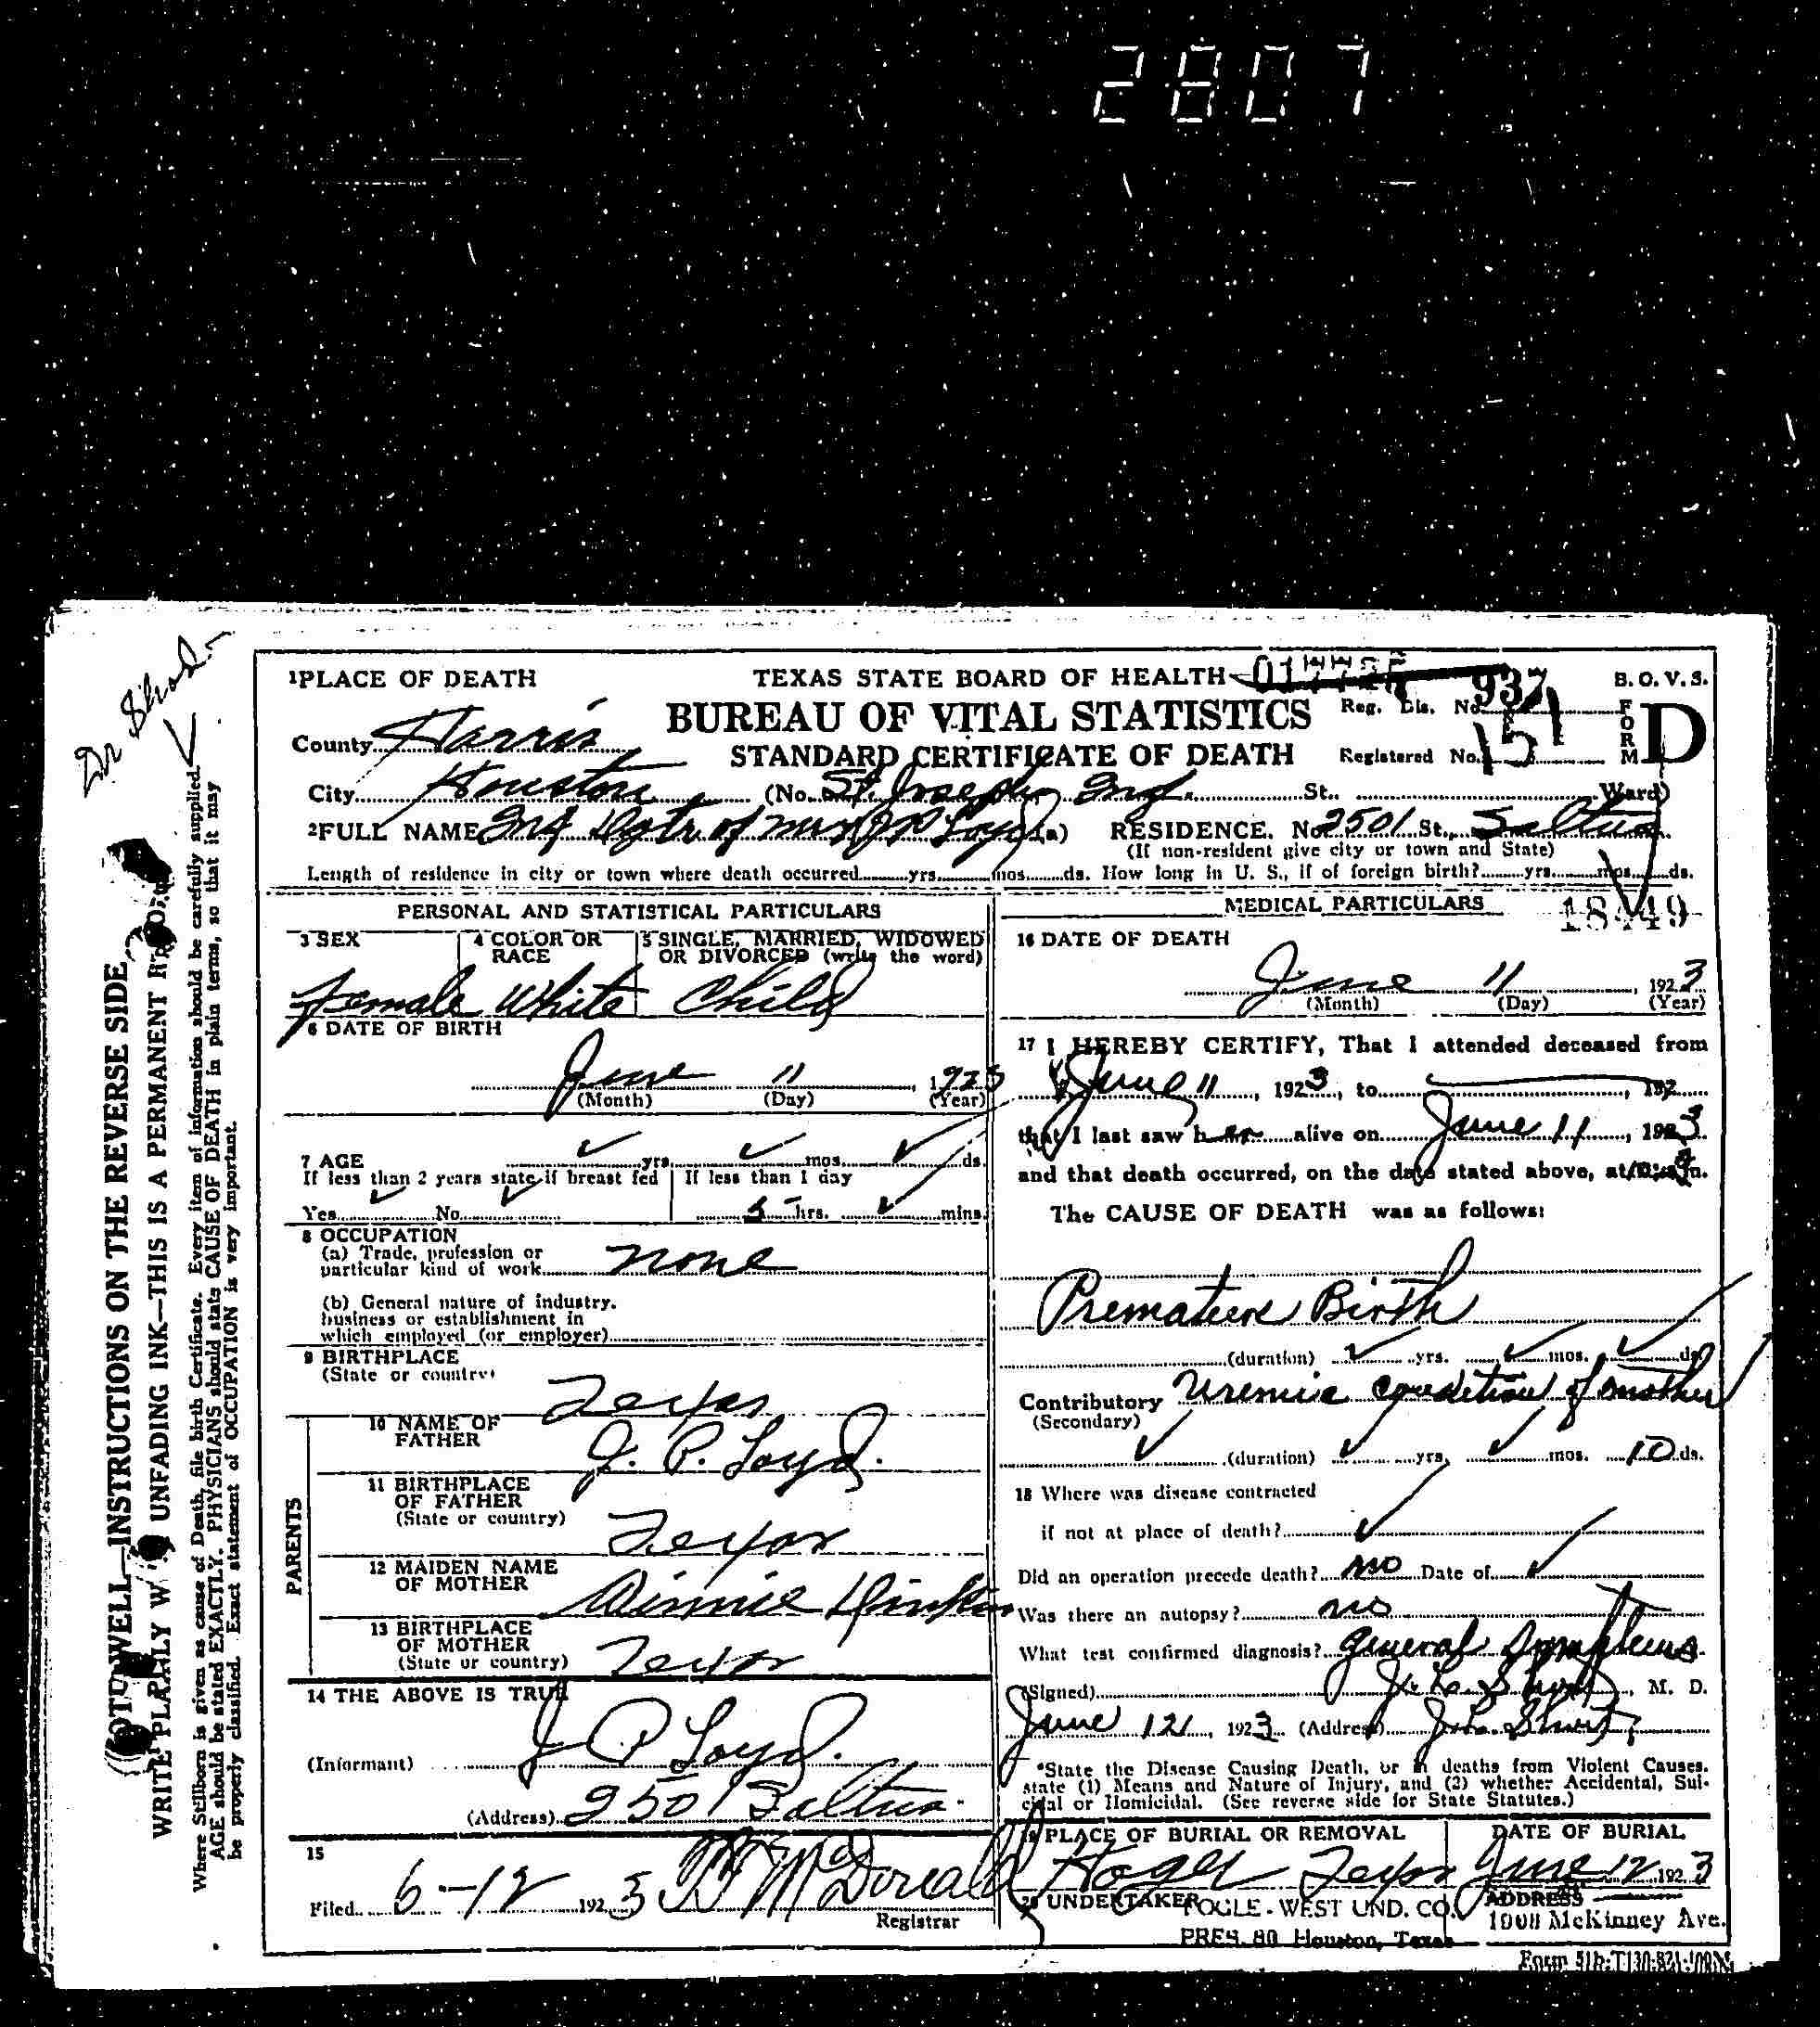 2807
Dr
1 PLACE OF DEATH
TEXAS STATE BOARD OF HEALTH
937
B. O. V. S.
BUREAU OF VITAL STATISTICS
Reg. Dis. No.
FORM D
County Harris
STANDARD CERTIFICATE OF DEATH
Registered No.
City Houston (No. St. Joseph Inf. St., Ward)
2 FULL NAME Inf Dgtr. of Mrs J P Loyd (a) RESIDENCE. No. 2501 St.,
(If non-resident give city or town and State)
Length of residence in city or town where death occurred yrs. mos. ds. How long in U. S., if of foreign birth? yrs. mos. ds.
PERSONAL AND STATISTICAL PARTICULARS
3 SEX
4 COLOR OR RACE
5 SINGLE, MARRIED, WIDOWED OR DIVORCED (write the word)
Female White Child
6 DATE OF BIRTH
June 11, 1923
(Month) (Day) (Year)
7 AGE yrs. mos. ds.
If less than 2 years state if breast fed
If less than 1 day
Yes No
5 hrs. mins.
8 OCCUPATION
(a) Trade, profession or
particular kind of work none
(b) General nature of industry.
business or establishment in
which employed (or employer)
9 BIRTHPLACE
(State or country)
Texas
PARENTS
10 NAME OF FATHER
J. P. Loyd.
11 BIRTHPLACE OF FATHER
(State or country)
Texas
12 MAIDEN NAME OF MOTHER
Winnie
13 BIRTHPLACE OF MOTHER
(State or country)
Texas
14 THE ABOVE IS TRUE
(Informant) J P Loyd.
(Address) 2501
15
Filed 6-12 1923 McDonald
Registrar
MEDICAL PARTICULARS
16 DATE OF DEATH
June 11, 1923
(Month) (Day) (Year)
17 I HEREBY CERTIFY, That I attended deceased from
June 11, 1923, to , 192
that I last saw her alive on June 11, 1923
and that death occurred, on the date stated above, at m.
The CAUSE OF DEATH was as follows:
Premature Birth
(duration) yrs. mos. ds.
Contributory Uremic condition of mother
(Secondary)
(duration) yrs. mos. 10 ds.
18 Where was disease contracted
if not at place of death?
Did an operation precede death? no Date of
Was there an autopsy? no
What test confirmed diagnosis? General Symptoms
(Signed) , M. D.
June 12, 1923 (Address)
*State the Disease Causing Death, or in deaths from Violent Causes.
state (1) Means and Nature of Injury, and (2) whether Accidental, Sui-
cidal or Homicidal. (See reverse side for State Statutes.)
19 PLACE OF BURIAL OR REMOVAL
DATE OF BURIAL
Texas June 12 1923
20 UNDERTAKER FOGLE-WEST UND. CO.
PRES. 80 Houston, Texas
ADDRESS
1008 McKinney Ave.
INSTRUCTIONS ON THE REVERSE SIDE
WRITE PLAINLY WITH UNFADING INK—THIS IS A PERMANENT RECORD
Where Stillborn is given as cause of Death, file birth Certificate. Every item of information should be carefully supplied.
AGE should be stated EXACTLY. PHYSICIANS should state CAUSE OF DEATH in plain terms, so that it may
be properly classified. Exact statement of OCCUPATION is very important.